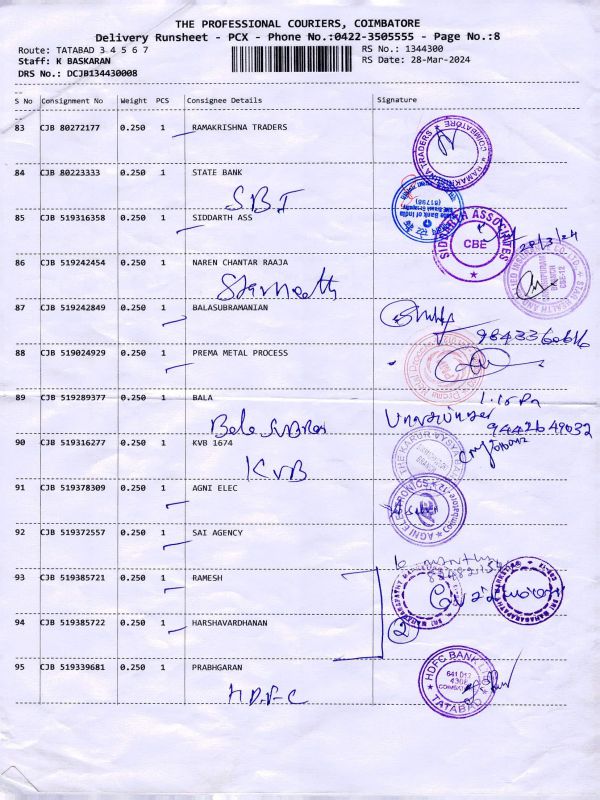 THE PROFESSIONAL COURIERS, COIMBATORE
Delivery Runsheet - PCX - Phone No.:0422-3505555 - Page No.:8
Route: TATABAD 3 4 5 6 7 RS No.: 1344300
Staff: K BASKARAN RS Date: 28-Mar-2024
DRS No.: DCJB134430008
S No Consignment No Weight PCS Consignee Details Signature
83 CJB 80272177 0.250 1 RAMAKRISHNA TRADERS
RAMAKRISHNA TRADERS COIMBATORE
84 CJB 80223333 0.250 1 STATE BANK
SBI
State Bank of India
85 CJB 519316358 0.250 1 SIDDARTH ASS
SIDDARTH ASSOCIATES CBE
28/3/24
86 CJB 519242454 0.250 1 NAREN CHANTAR RAAJA
CBE-12
87 CJB 519242849 0.250 1 BALASUBRAMANIAN
88 CJB 519024929 0.250 1 PREMA METAL PROCESS
89 CJB 519289377 0.250 1 BALA
9442649032
90 CJB 519316277 0.250 1 KVB 1674
KVB
THE KARUR VYSYA
91 CJB 519378309 0.250 1 AGNI ELEC
AGNI ELECTRONICS Coimbatore-12
92 CJB 519372557 0.250 1 SAI AGENCY
93 CJB 519385721 0.250 1 RAMESH
94 CJB 519385722 0.250 1 HARSHAVARDHANAN
2
95 CJB 519339681 0.250 1 PRABHGARAN
HDFC
HDFC BANK LTD
TATABAD